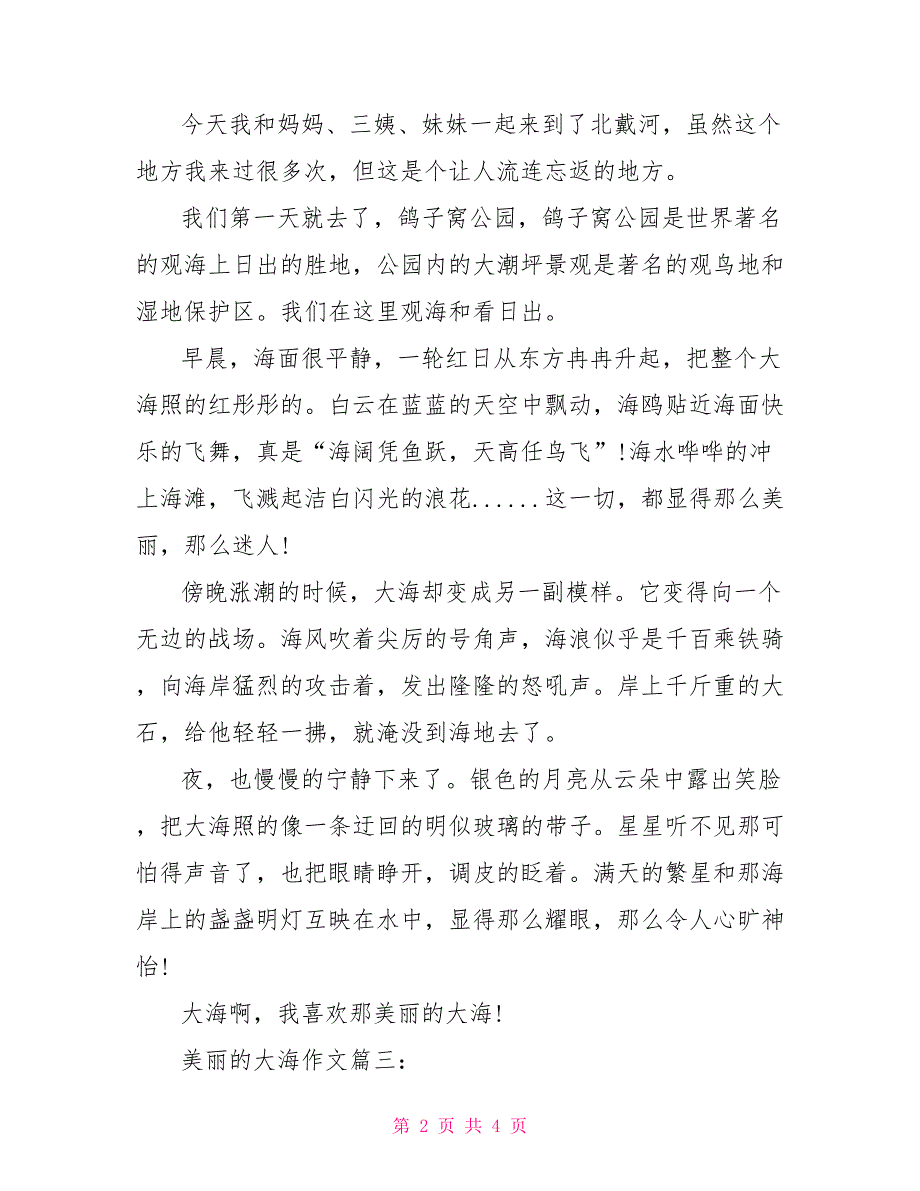 今天我和妈妈、三姨、妹妹一起来到了北戴河，虽然这个
地方我来过很多次，但这是个让人流连忘返的地方。
我们第一天就去了，鸽子窝公园，鸽子窝公园是世界著名
的观海上日出的胜地，公园内的大潮坪景观是著名的观鸟地和
湿地保护区。我们在这里观海和看日出。
早晨，海面很平静，一轮红日从东方冉冉升起，把整个大
海照的红彤彤的。白云在蓝蓝的天空中飘动，海鸥贴近海面快
乐的飞舞，真是“海阔凭鱼跃，天高任鸟飞”!海水哗哗的冲
上海滩，飞溅起洁白闪光的浪花......这一切，都显得那么美
丽，那么迷人!
傍晚涨潮的时候，大海却变成另一副模样。它变得向一个
无边的战场。海风吹着尖厉的号角声，海浪似乎是千百乘铁骑
，向海岸猛烈的攻击着，发出隆隆的怒吼声。岸上千斤重的大
石，给他轻轻一拂，就淹没到海地去了。
夜，也慢慢的宁静下来了。银色的月亮从云朵中露出笑脸
，把大海照的像一条迂回的明似玻璃的带子。星星听不见那可
怕得声音了，也把眼睛睁开，调皮的眨着。满天的繁星和那海
岸上的盏盏明灯互映在水中，显得那么耀眼，那么令人心旷神
怡!
大海啊，我喜欢那美丽的大海!
美丽的大海作文篇三：
第 2 页 共 4 页